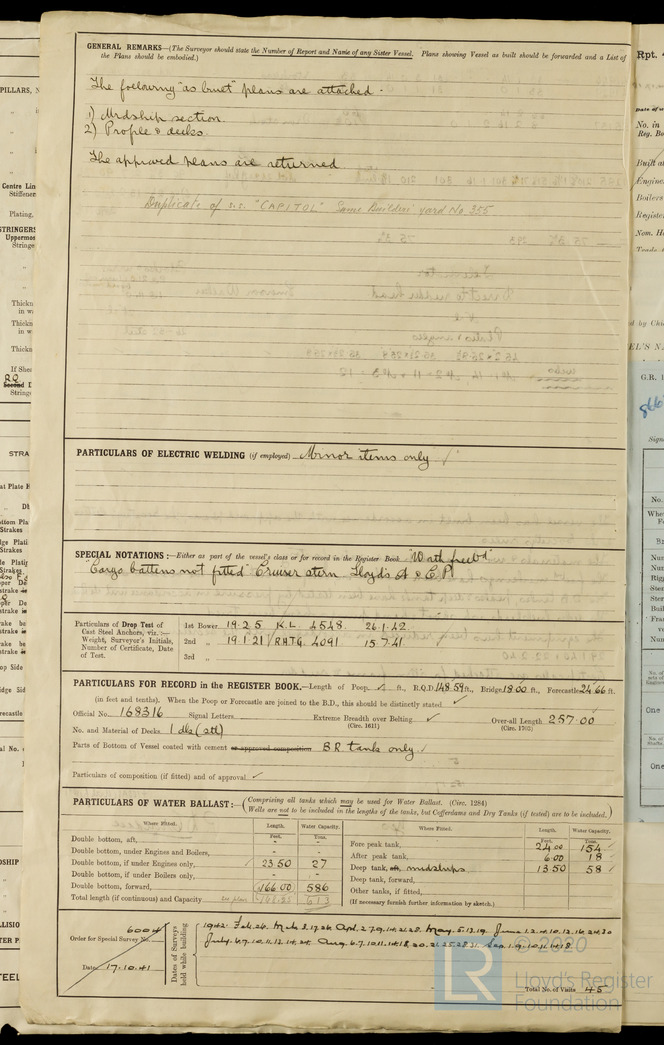 GENERAL REMARKS—(The Surveyor should state the Number of Report and Name of any Sister Vessel. Plans showing Vessel as built should be forwarded and a List of
the Plans should be embodied.)
The following "as built" plans are attached.
1) Midship section.
2) Profile & decks.
The approved plans are returned
Duplicate of s.s. "CAPITOL" Same Builders' yard No. 355
PARTICULARS OF ELECTRIC WELDING (if employed) Minor items only
SPECIAL NOTATIONS:—Either as part of the vessel's class or for record in the Register Book "With freebd"
"Cargo battens not fitted" Cruiser stern Lloyd's A & C.P.
Particulars of Drop Test of
Cast Steel Anchors, viz.:—
Weight, Surveyor's Initials,
Number of Certificate, Date
of Test.
1st Bower 19.2.5 K.L 4548. 26.1.42.
2nd " 19.1.21 R.H.T.G. 4091 15.7.41
3rd "
PARTICULARS FOR RECORD in the REGISTER BOOK.—Length of Poop ft., R.Q.D. 148.59 ft., Bridge 18.00 ft., Forecastle 24.66 ft.
(in feet and tenths). When the Poop or Forecastle are joined to the B.D., this should be distinctly stated
Official No. 168316 Signal Letters Extreme Breadth over Belting (Circ. 1611) Over-all Length 257.00 (Circ. 1703)
No. and Material of Decks 1 dk (stl)
Parts of Bottom of Vessel coated with cement or approved composition BR tanks only
Particulars of composition (if fitted) and of approval
PARTICULARS OF WATER BALLAST:—(Comprising all tanks which may be used for Water Ballast. (Circ. 1284)
Wells are not to be included in the lengths of the tanks, but Cofferdams and Dry Tanks (if tested) are to be included.)
Where Fitted. Length. Water Capacity. Where Fitted. Length. Water Capacity.
Feet. Tons. Feet. Tons.
Double bottom, aft, Fore peak tank, 24.00 154
Double bottom, under Engines and Boilers, After peak tank, 6.00 18
Double bottom, if under Engines only, 23.50 27 Deep tank, aft, midships 13.50 58
Double bottom, if under Boilers only, Deep tank, forward,
Double bottom, forward, 166.00 586 Other tanks, if fitted,
Total length (if continuous) and Capacity 613 (If necessary furnish further information by sketch.)
Order for Special Survey No. 6004
Date 17.10.41
Dates of Surveys held while building
1942: Feb. 26. Mch 8.17.26 Apl. 2.7.9.14.21.28. May. 5.13.19. June 1.2.4.10.12.16.24.30
July. 6.7.10.11.13.14.24 Aug. 6.7.10.11.14.18.20.21.25.28.31. Sep. 1.9.10.11.14.18
Total No. of Visits 45
© 2020
LR
Lloyd's Register
Foundation
Rpt.